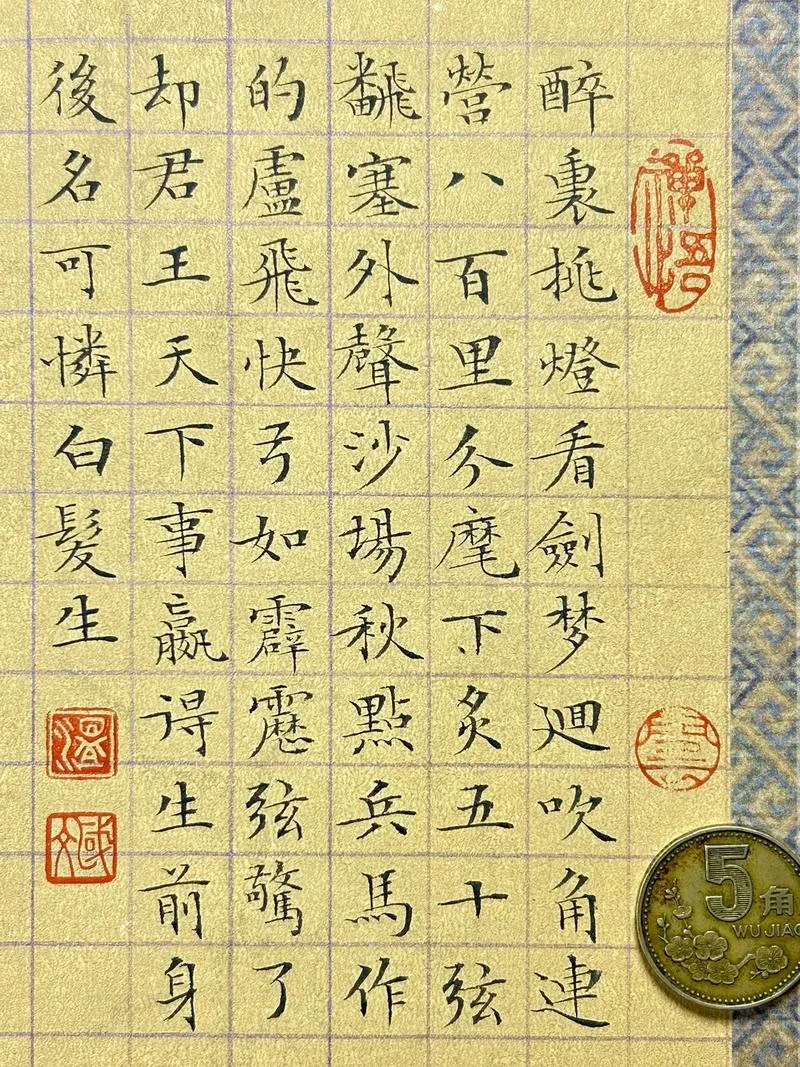 醉裏挑燈看劍梦廻吹角連
營八百里分麾下炙五十弦
飜塞外聲沙場秋點兵馬作
的盧飛快弓如霹靂弦驚了
却君王天下事贏得生前身
後名可憐白髮生
禪悟
温
國文
5角
WU JIAO